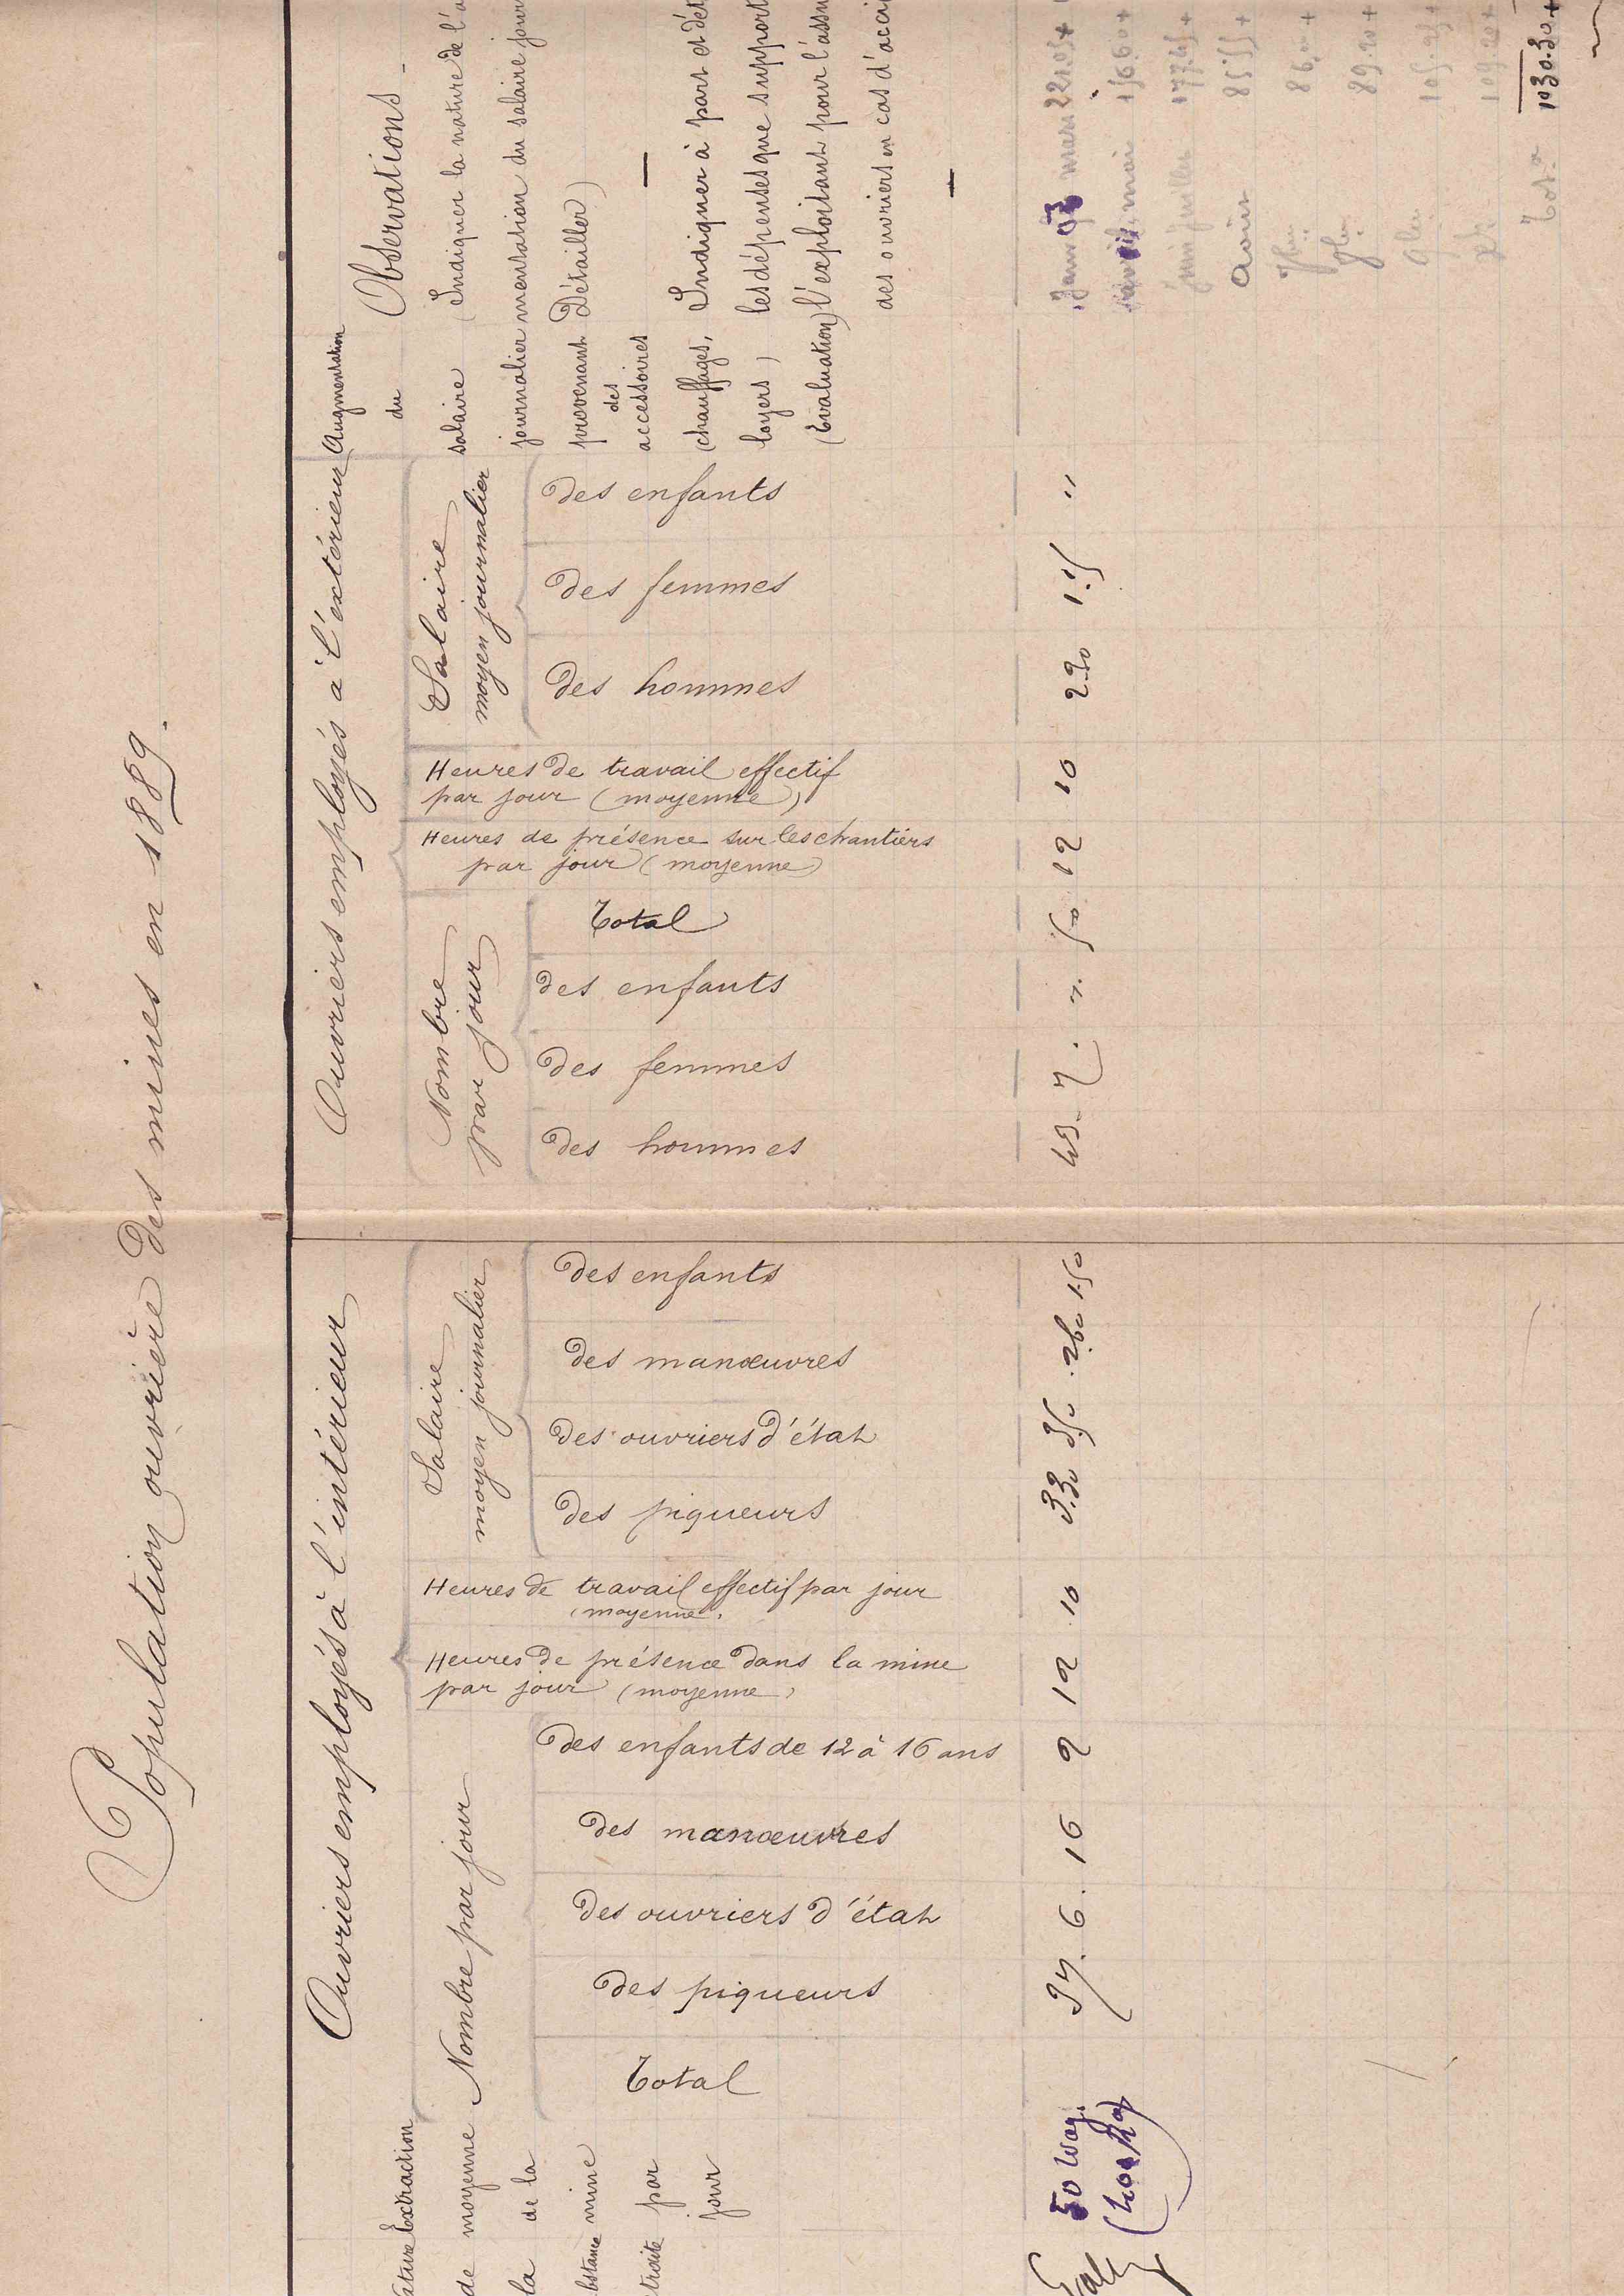 Population ouvrière des mines en 1889.
Ouvriers employés à l'intérieur
Ouvriers employés à l'extérieur
Extraction
moyenne
de la
mine
par
jour
de
la
Nombre par jour
Total
des piqueurs
des ouvriers d'état
des manœuvres
des enfants de 12 à 16 ans
Heures de présence dans la mine
par jour (moyenne)
Heures de travail effectif par jour
(moyenne)
Salaire
moyen journalier
des piqueurs
des ouvriers d'état
des manœuvres
des enfants
Nombre
par jour
des hommes
des femmes
des enfants
Total
Heures de présence sur les chantiers
par jour (moyenne)
Heures de travail effectif
par jour (moyenne)
Salaire
moyen journalier
des hommes
des femmes
des enfants
Augmentation
du
salaire
journalier
provenant
des
accessoires
(chauffages,
loyers)
(Evaluation)
Observations
(Indiquer la nature de l'a
mentation du salaire jour
Détailler)
Indiquer à part et dét
les dépenses que support
l'exploitant pour l'assu
des ouvriers en cas d'acci
50 wag.
(400 kg)
6. 16 2 12 10 3.30 3.50 2.60 1.50
43. 7. ". 50 12 10 2.90 1.25 "
mars 221.05+
mai 156.60+
juin juillet 177.45+
Aout 85.55+
86.00+
89.20+
105.25+
109.20+
Tot. 1030.30+